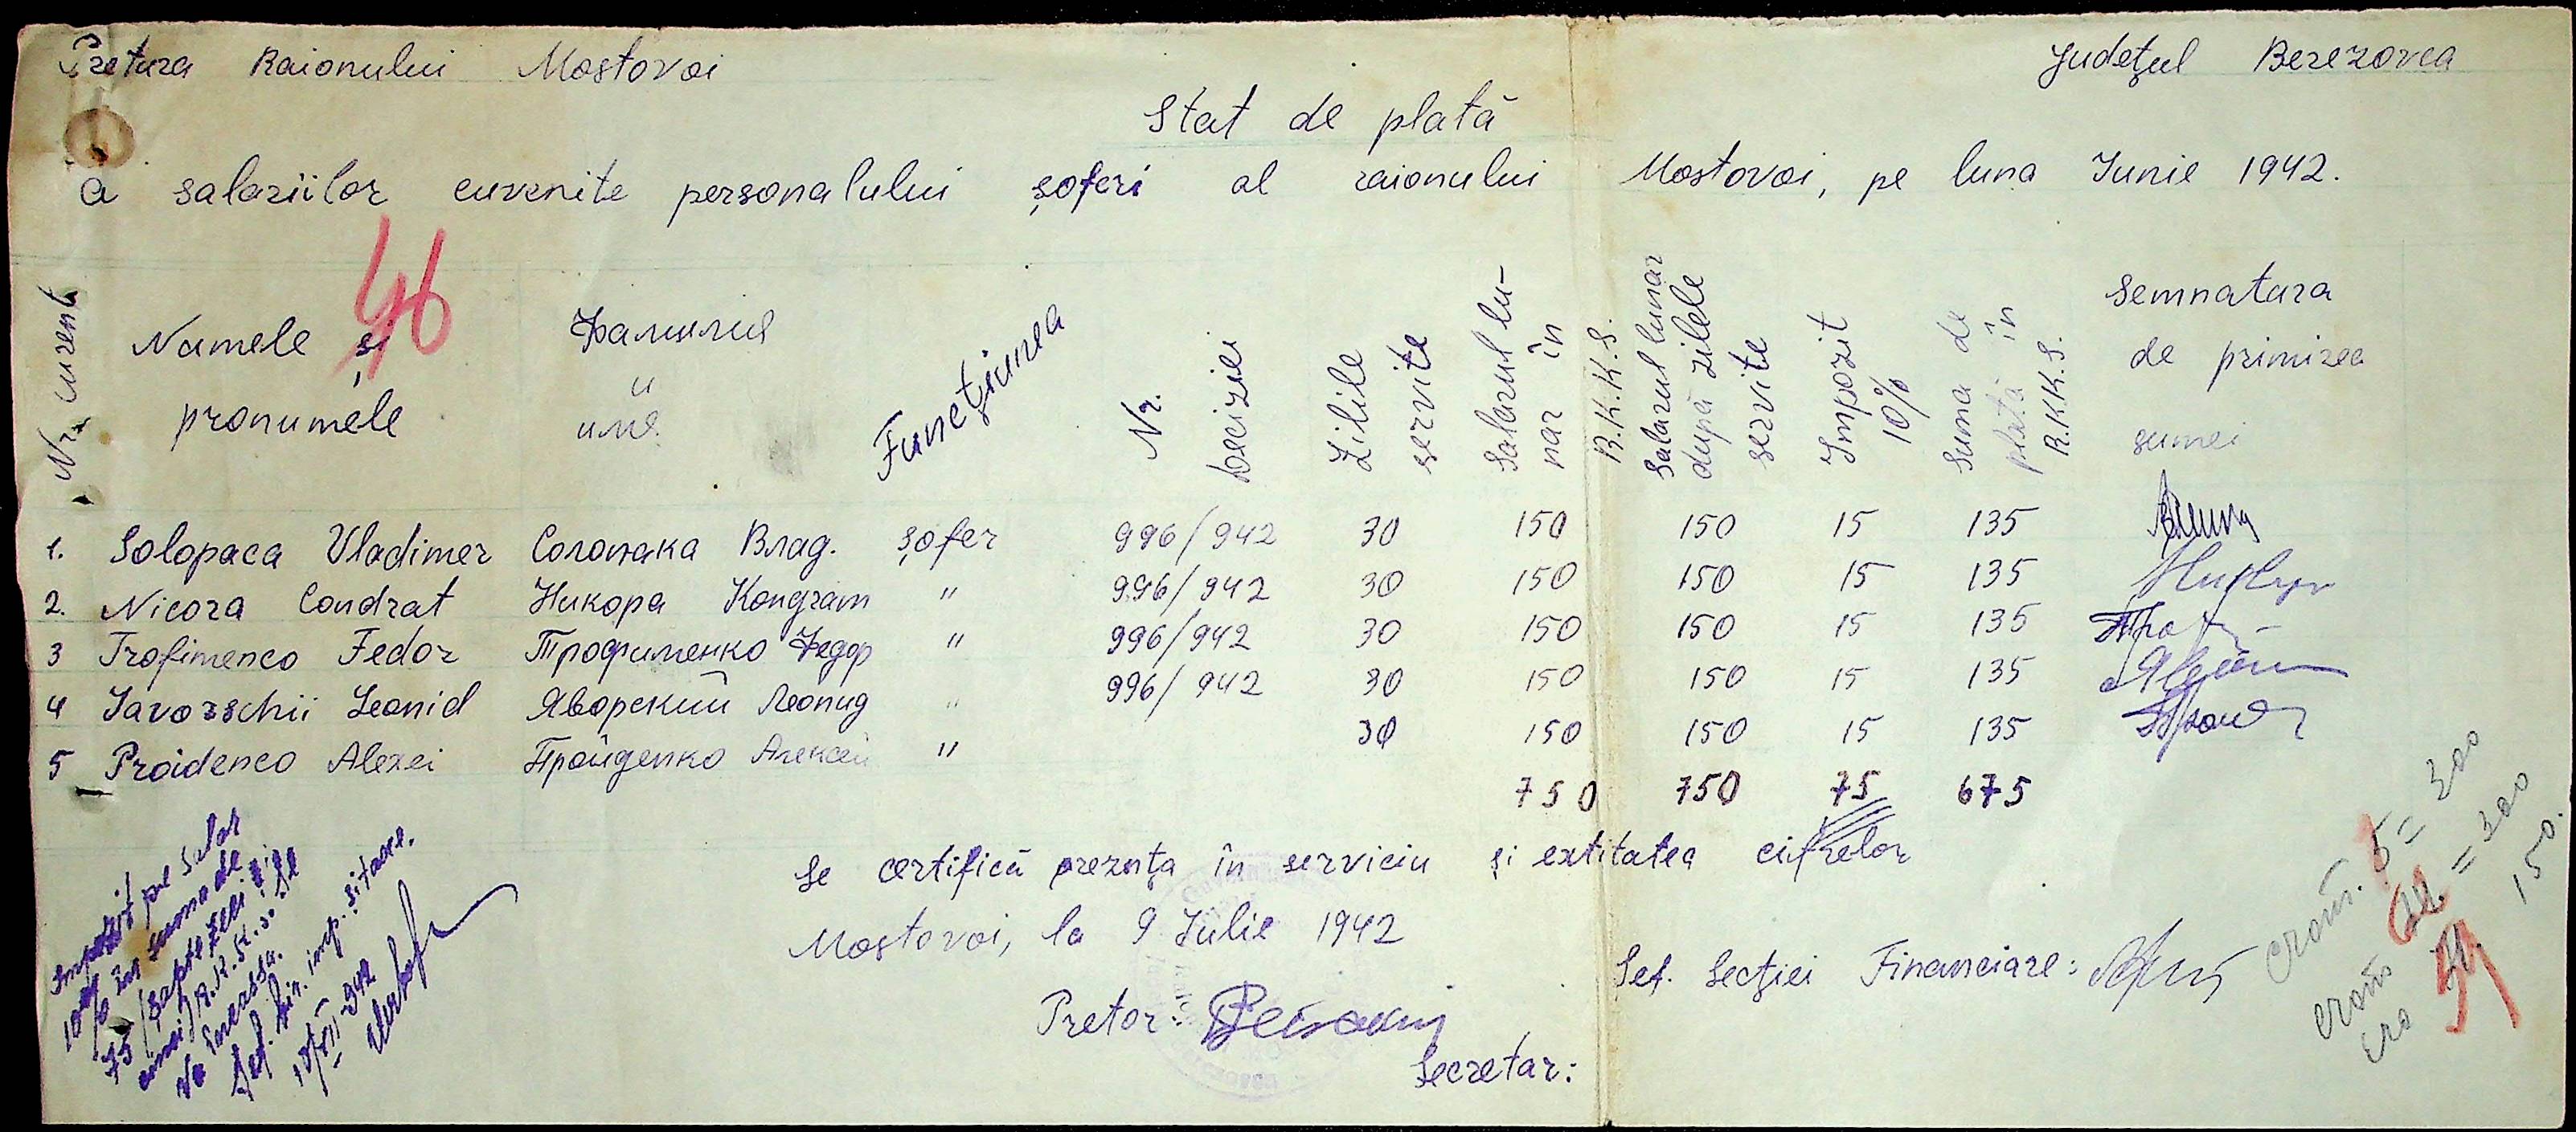 Pretura Raionului Mostovoi
Județul Berezovca
Stat de plată
a salariilor cuvenite personalului șoferi al raionului Mostovoi, pe luna Iunie 1942.
46
Nr. curent
Numele și pronumele
Фамилия и имя.
Funcțiunea
Nr. deciziei
Zilile servite
Salarul lu-nar în R.K.K.S.
Salarul lunar după zilele servite
Impozit 10%
Suma de plată în R.K.K.S.
Semnatura de primirea sumei
1. Solopaca Vladimer Солопака Влад. șofer 996/942 30 150 150 15 135
2. Nicora Condrat Никора Кондрат " 996/942 30 150 150 15 135
3 Trofimenco Fedor Трофименко Федор " 996/942 30 150 150 15 135
4 Iavorschii Leonid Яворский Леонид " 996/942 30 150 150 15 135
5 Proidenco Alexei Пройденко Алексей " 30 150 150 15 135
750 750 75 675
Se certifică prezența în serviciu și extitatea cifrelor
Mostovoi, la 9 Iulie 1942
Pretor:
Secretar:
Șef. Secției Financiare:
Impozit pe Salar
10% în suma de
75 /șapte zeci și
cinci/ R.K.K.S. se
va încassa.
Șef. imp. și taxe.
= 300
= 300
150.